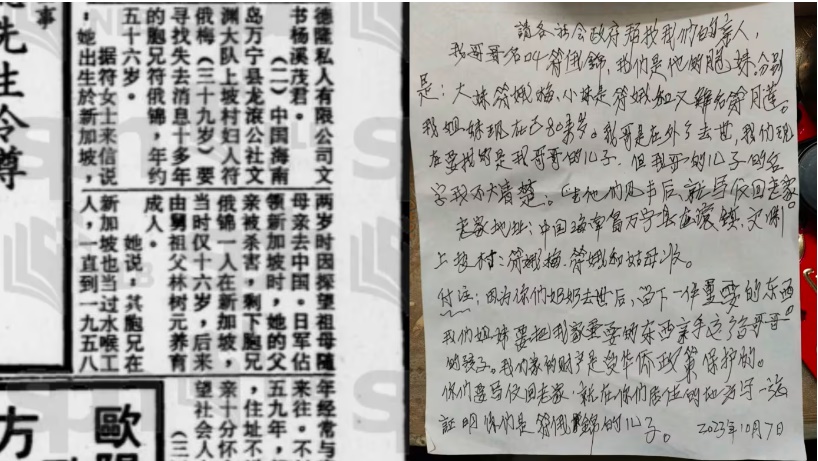 德隆私人有限公司文
书杨溪茂君。
（二）中国海南
岛万宁县龙滚公社文
渊大队上坡村妇人符
俄梅（三十九岁）要
寻找失去消息十多年
的胞兄符俄锦，年约
五十六岁。
据符女士来信说
，她出生於新加坡，
两岁时因探望祖母随
母亲去中国。日军佔
领新加坡时，她的父
亲被杀害，剩下胞兄
俄锦一人在新加坡，
当时仅十六岁，后来
由舅祖父林树元养育
成人。
她说，其胞兄在
新加坡也当过水喉工
人，一直到一九五八
年经常与
来往。不
五九年，
，住址不
亲十分怀
望社会人
（三
事
先生令尊
歐
方
請各社会政府帮找我们的亲人，
我哥哥名叫符俄錦，我们是他的胞妹分别
是：大妹符娥梅，小妹是符娥和又雅名符月莲。
我姐妹现在已80耒岁。我哥是在外多去世，我们现
在要找的是我哥哥的儿子，但我哥的儿子的名
字我不大清楚。等他们见书后，就写仅回老家。
老家地址：中国海南省万宁县龙滚镇，文渊
上坡村：符娥梅、符娥和姑母收。
付注：因为你们奶奶去世后，留下一件重要的东西
我们姐妹要把我家重要的东西亲手交给哥哥
的孩子。我们家的财产是受华侨政策保护的。
你们要写仅回老家，就在你们居住的地方写一张
証明你们是符俄錦的儿子。 2023年10月7日